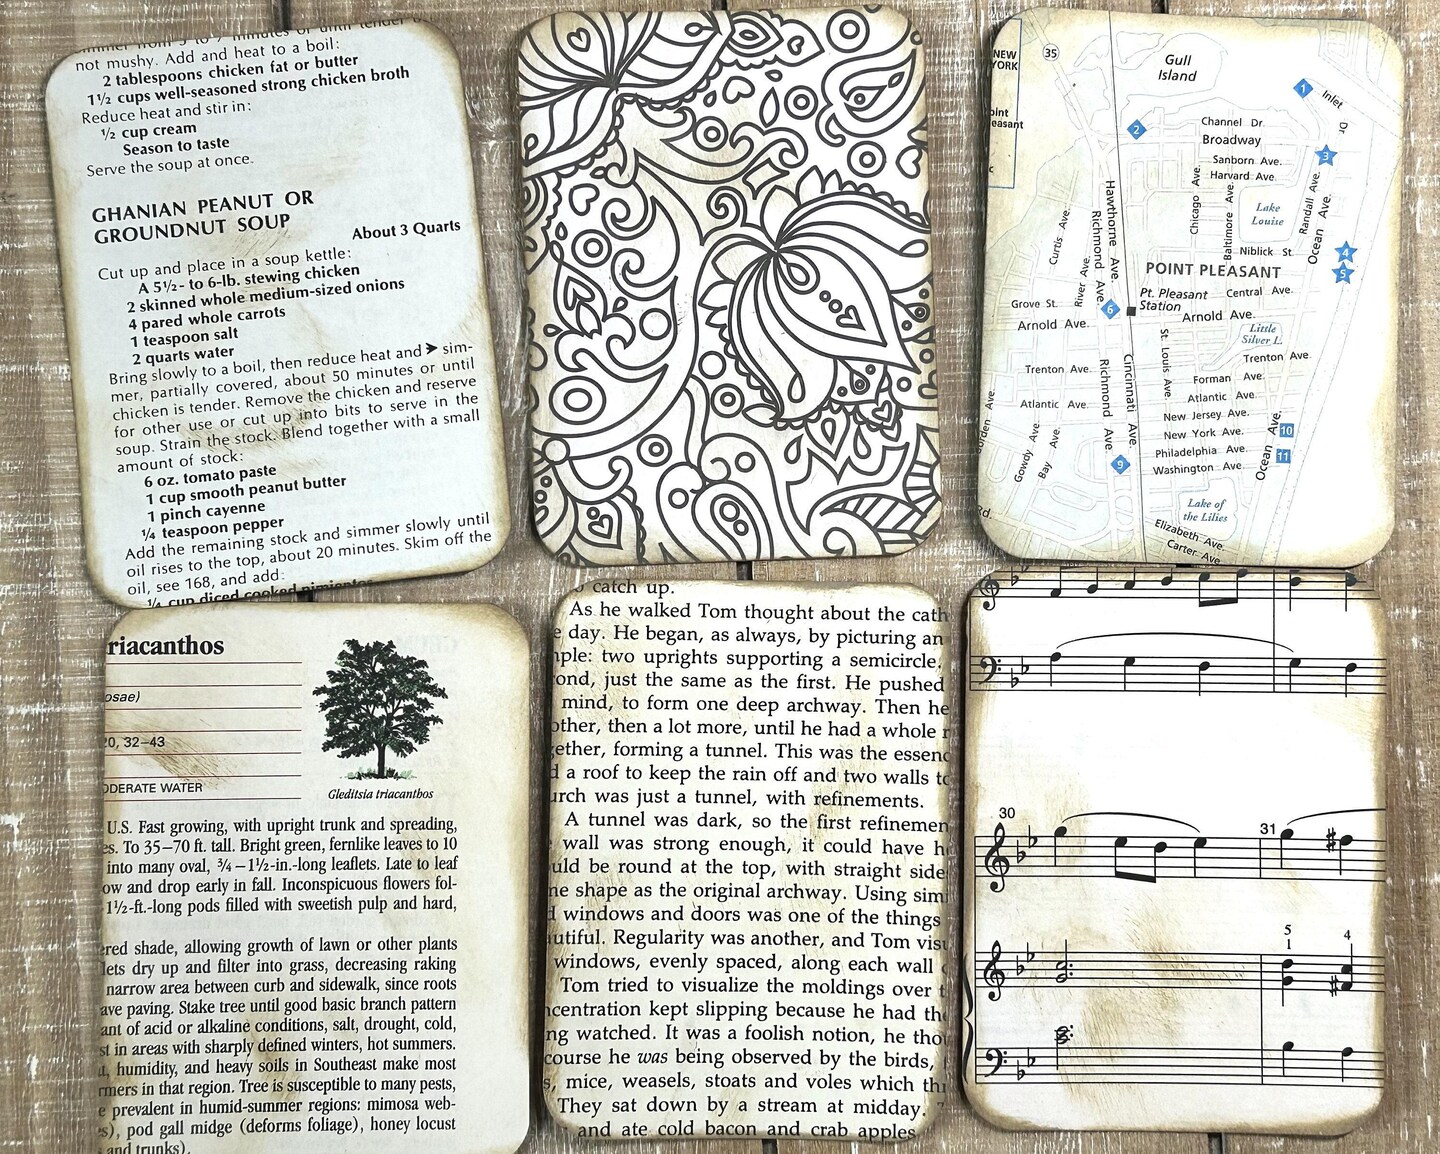 not mushy. Add and heat to a boil:
2 tablespoons chicken fat or butter
1½ cups well-seasoned strong chicken broth
Reduce heat and stir in:
½ cup cream
Season to taste
Serve the soup at once.
GHANIAN PEANUT OR
GROUNDNUT SOUP
About 3 Quarts
Cut up and place in a soup kettle:
A 5½- to 6-lb. stewing chicken
2 skinned whole medium-sized onions
4 pared whole carrots
1 teaspoon salt
2 quarts water
Bring slowly to a boil, then reduce heat and ➤ sim-
mer, partially covered, about 50 minutes or until
chicken is tender. Remove the chicken and reserve
for other use or cut up into bits to serve in the
soup. Strain the stock. Blend together with a small
amount of stock:
6 oz. tomato paste
1 cup smooth peanut butter
1 pinch cayenne
¼ teaspoon pepper
Add the remaining stock and simmer slowly until
oil rises to the top, about 20 minutes. Skim off the
oil, see 168, and add:
¼ cup diced cooked pimientos
NEW
YORK
35
Gull
Island
1
Inlet
Dr.
2
Channel Dr.
Broadway
3
Sanborn Ave.
Harvard Ave.
Hawthorne Ave.
Richmond Ave.
Curtis Ave.
River Ave.
Chicago Ave.
Baltimore Ave.
Lake
Louise
Randall Ave.
Ocean Ave.
Niblick St.
4
5
POINT PLEASANT
Pt. Pleasant
Station
Central Ave.
Grove St.
6
Arnold Ave.
Arnold Ave.
St. Louis Ave.
Little
Silver L.
Trenton Ave.
Trenton Ave.
Richmond Ave.
Cincinnati Ave.
Forman Ave.
Atlantic Ave.
Atlantic Ave.
New Jersey Ave.
New York Ave.
10
Philadelphia Ave.
11
Washington Ave.
Ocean Ave.
Gowdy Ave.
Bay Ave.
9
Rd.
Lake of
the Lilies
Elizabeth Ave.
Carter Ave.
riacanthos
osae)
20, 32–43
ODERATE WATER
Gleditsia triacanthos
U.S. Fast growing, with upright trunk and spreading,
es. To 35–70 ft. tall. Bright green, fernlike leaves to 10
into many oval, ¾–1½-in.-long leaflets. Late to leaf
ow and drop early in fall. Inconspicuous flowers fol-
1½-ft.-long pods filled with sweetish pulp and hard,
ered shade, allowing growth of lawn or other plants
lets dry up and filter into grass, decreasing raking
narrow area between curb and sidewalk, since roots
ave paving. Stake tree until good basic branch pattern
ant of acid or alkaline conditions, salt, drought, cold,
st in areas with sharply defined winters, hot summers.
humidity, and heavy soils in Southeast make most
rmers in that region. Tree is susceptible to many pests,
e prevalent in humid-summer regions: mimosa web-
s), pod gall midge (deforms foliage), honey locust
and trunks).
o catch up.
As he walked Tom thought about the cath
e day. He began, as always, by picturing an
ple: two uprights supporting a semicircle.
ond, just the same as the first. He pushed
mind, to form one deep archway. Then he
other, then a lot more, until he had a whole r
gether, forming a tunnel. This was the essenc
d a roof to keep the rain off and two walls to
urch was just a tunnel, with refinements.
A tunnel was dark, so the first refinemen
wall was strong enough, it could have h
uld be round at the top, with straight side
ne shape as the original archway. Using simi
d windows and doors was one of the things
autiful. Regularity was another, and Tom visu
windows, evenly spaced, along each wall
Tom tried to visualize the moldings over t
ncentration kept slipping because he had the
ng watched. It was a foolish notion, he thou
course he was being observed by the birds,
s, mice, weasels, stoats and voles which thr
They sat down by a stream at midday.
and ate cold bacon and crab apples
30
31
5
1
4